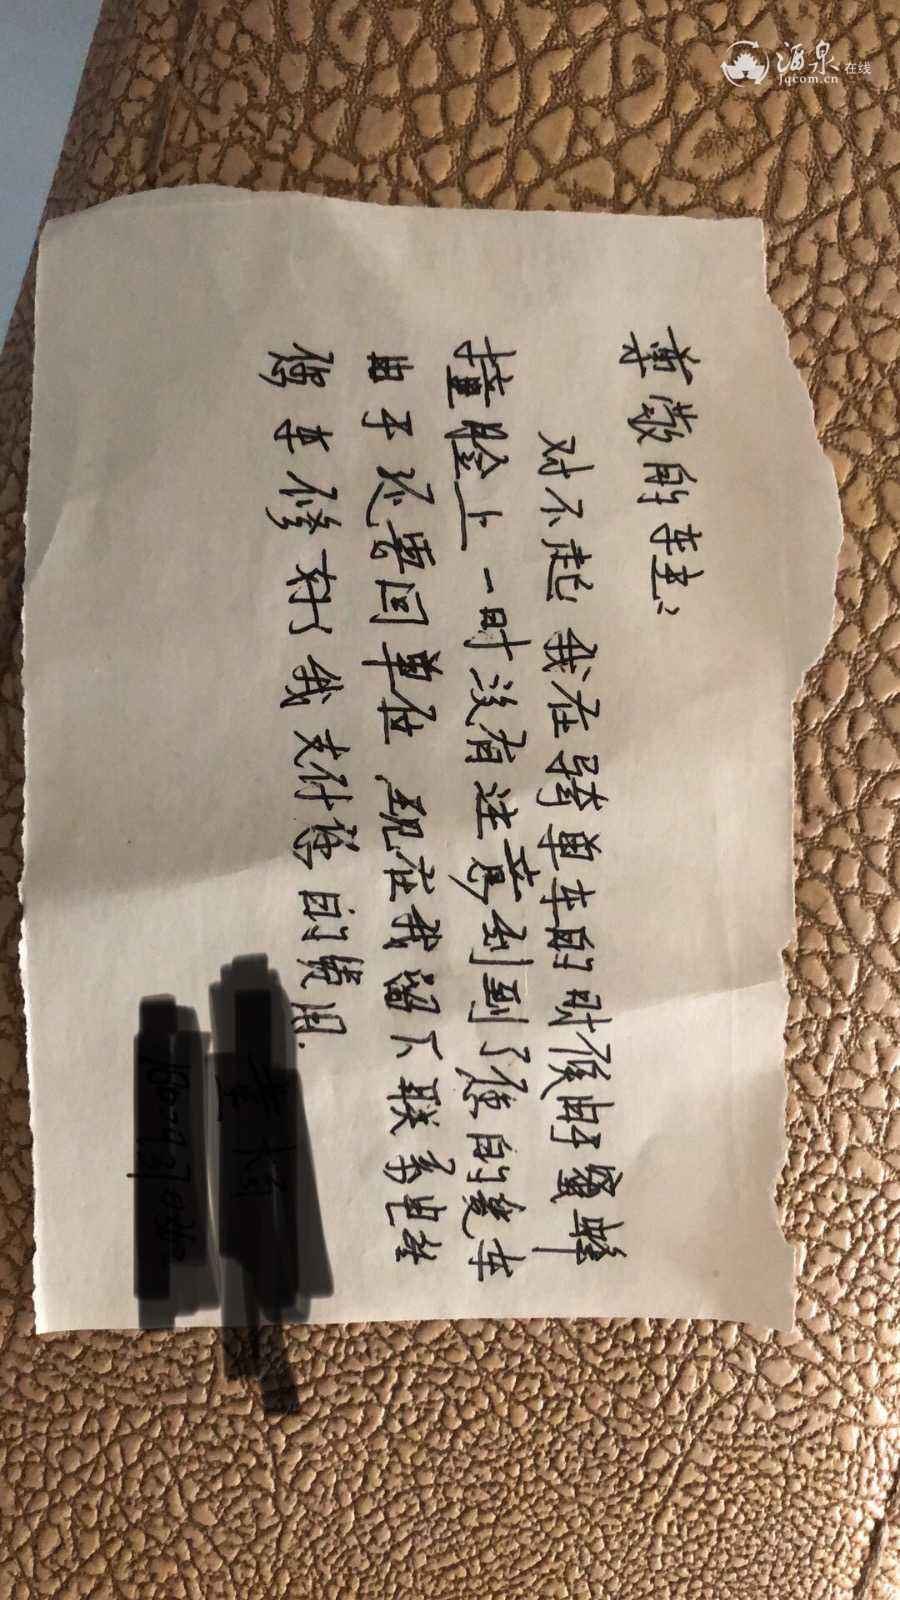 酒泉在线
Jqcom.cn
尊敬的车主：
对不起 我在骑单车的时候由于蜜蜂
撞脸上 一时没有注意刮到了您的爱车
由于还要回单位 现在我留下联系电话
您车修好了我支付您的费用.